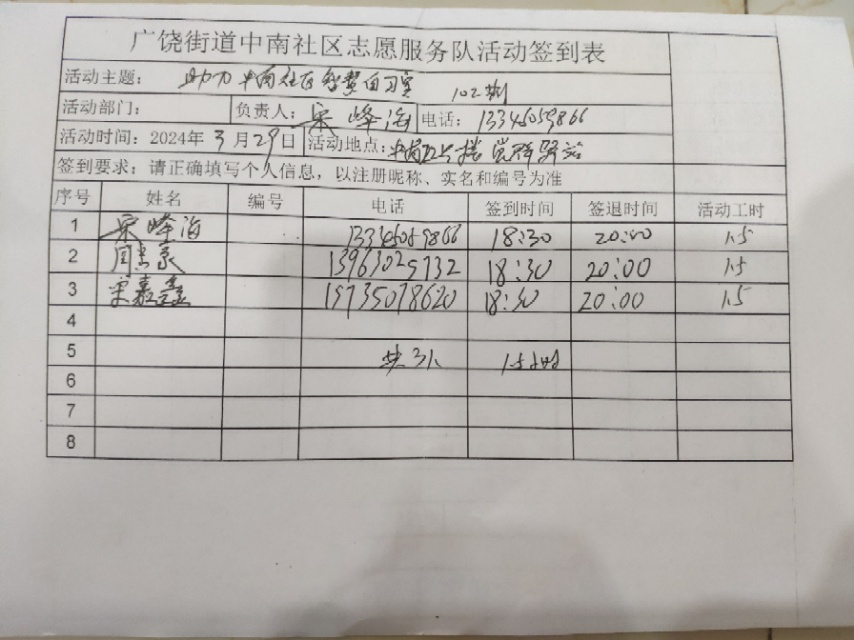 广饶街道中南社区志愿服务队活动签到表
活动主题: 助力中南社区智慧自习室 102期
活动部门: 负责人: 宋峰海 电话: 13345059866
活动时间: 2024年 3 月 29 日 活动地点: 中南 楼党群驿站
签到要求: 请正确填写个人信息, 以注册昵称、实名和编号为准
序号 姓名 编号 电话 签到时间 签退时间 活动工时
1 宋峰海 13345059866 18:30 20:00 1.5
2 13963025732 18:30 20:00 1.5
3 嘉鑫 15735078620 18:30 20:00 1.5
4
5 共3人
6
7
8